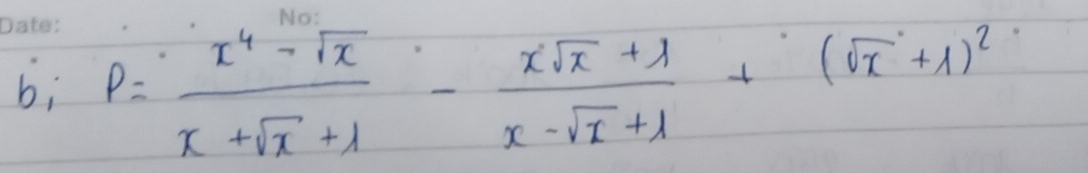 Date: No:
b; P = \frac{x^4 - \sqrt{x}}{x + \sqrt{x} + 1} - \frac{x\sqrt{x} + 1}{x - \sqrt{x} + 1} + (\sqrt{x} + 1)^2